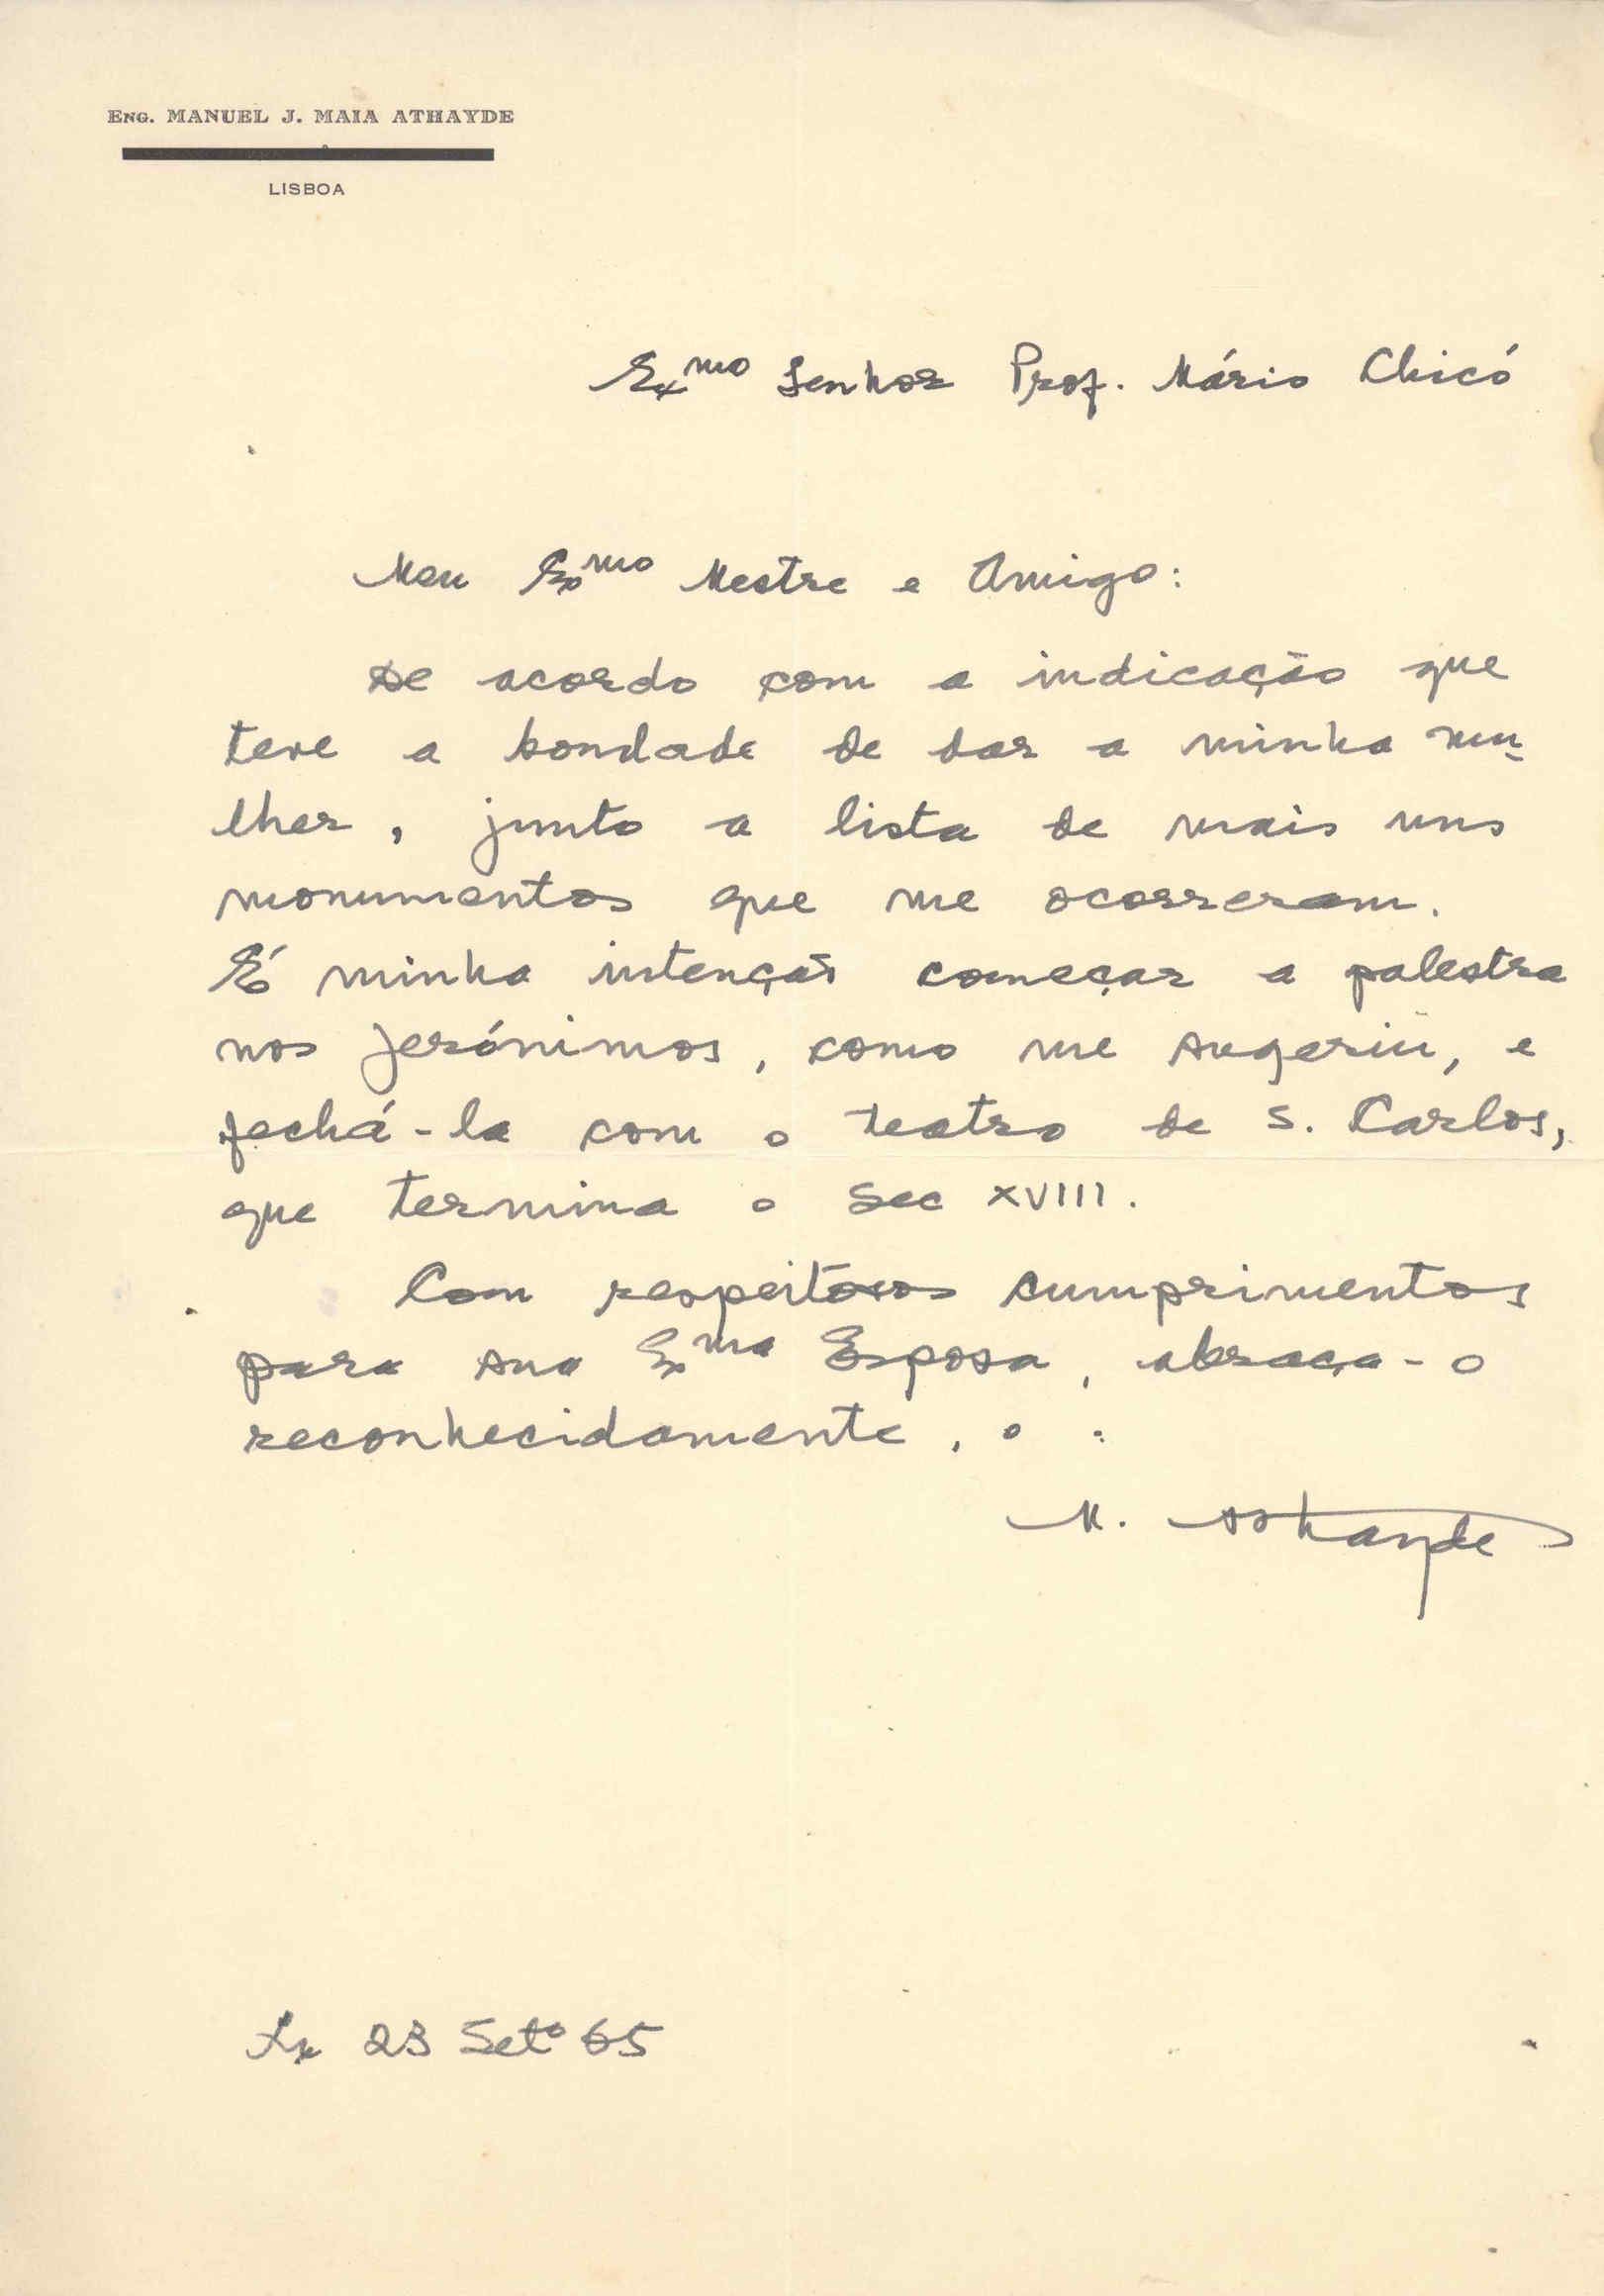 Eng. MANUEL J. MAIA ATHAYDE
LISBOA
Exmo Senhor Prof. Mário Chicó
Meu Exmo Mestre e Amigo:
De acordo com a indicação que
teve a bondade de dar a minha mu-
lher, junto a lista de mais uns
monumentos que me ocorreram.
É minha intenção começar a palestra
nos Jerónimos, como me sugeriu, e
fechá-la com o teatro de S. Carlos,
que termina o sec XVIII.
Com respeitosos cumprimentos
para sua Exma Esposa, abraça-o
reconhecidamente, o :
M. Athayde
Lx 23 Seto 65